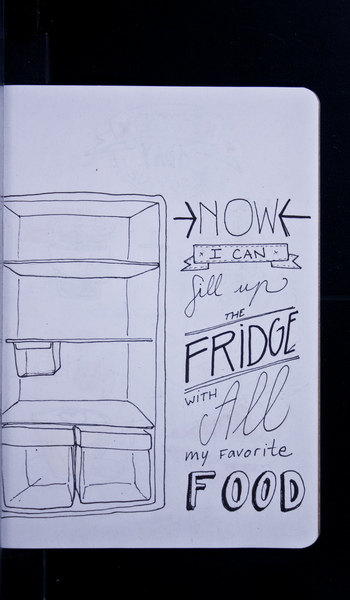 NOW
I CAN
fill up
THE
FRiDGE
WITH
All
my Favorite
FOOD